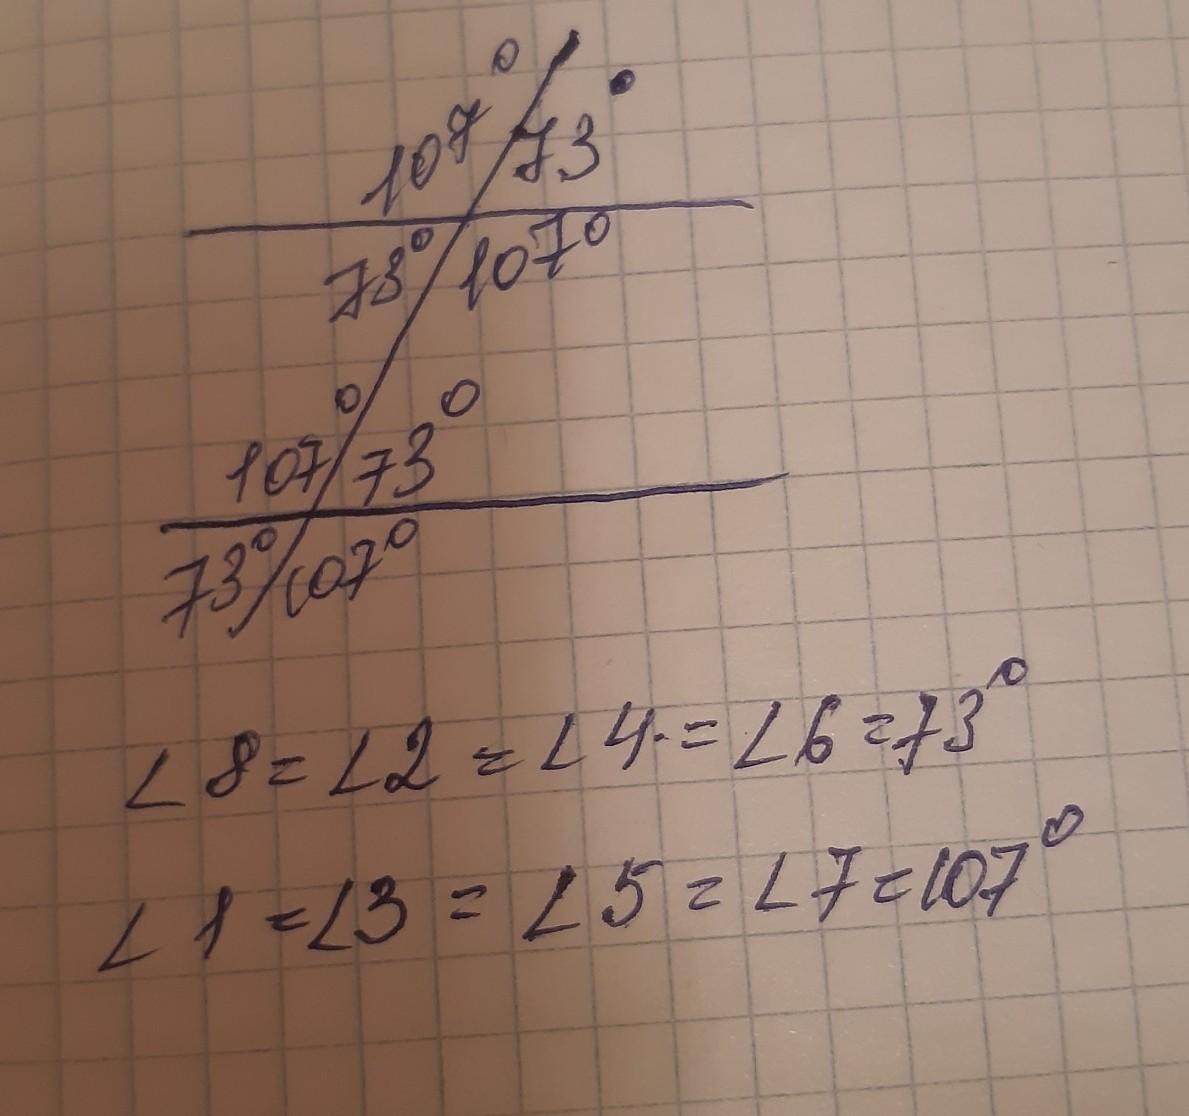 107° 73°
73° 107°
107° 73°
73° 107°
∠8=∠2=∠4.=∠6=73°
∠1=∠3=∠5=∠7=107°